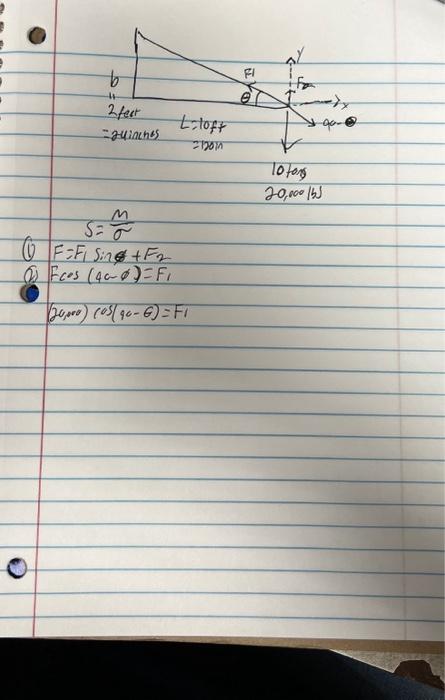 y
F1
F2
b
θ
x
"
2 feet
= 24 inches
L = 10ft
= 120in
90-θ
10 tons
20,000 lbs
S = M/σ
① F = F1 Sinθ + F2
② Fcos (90-θ) = F1
(20,000) cos(90-θ) = F1